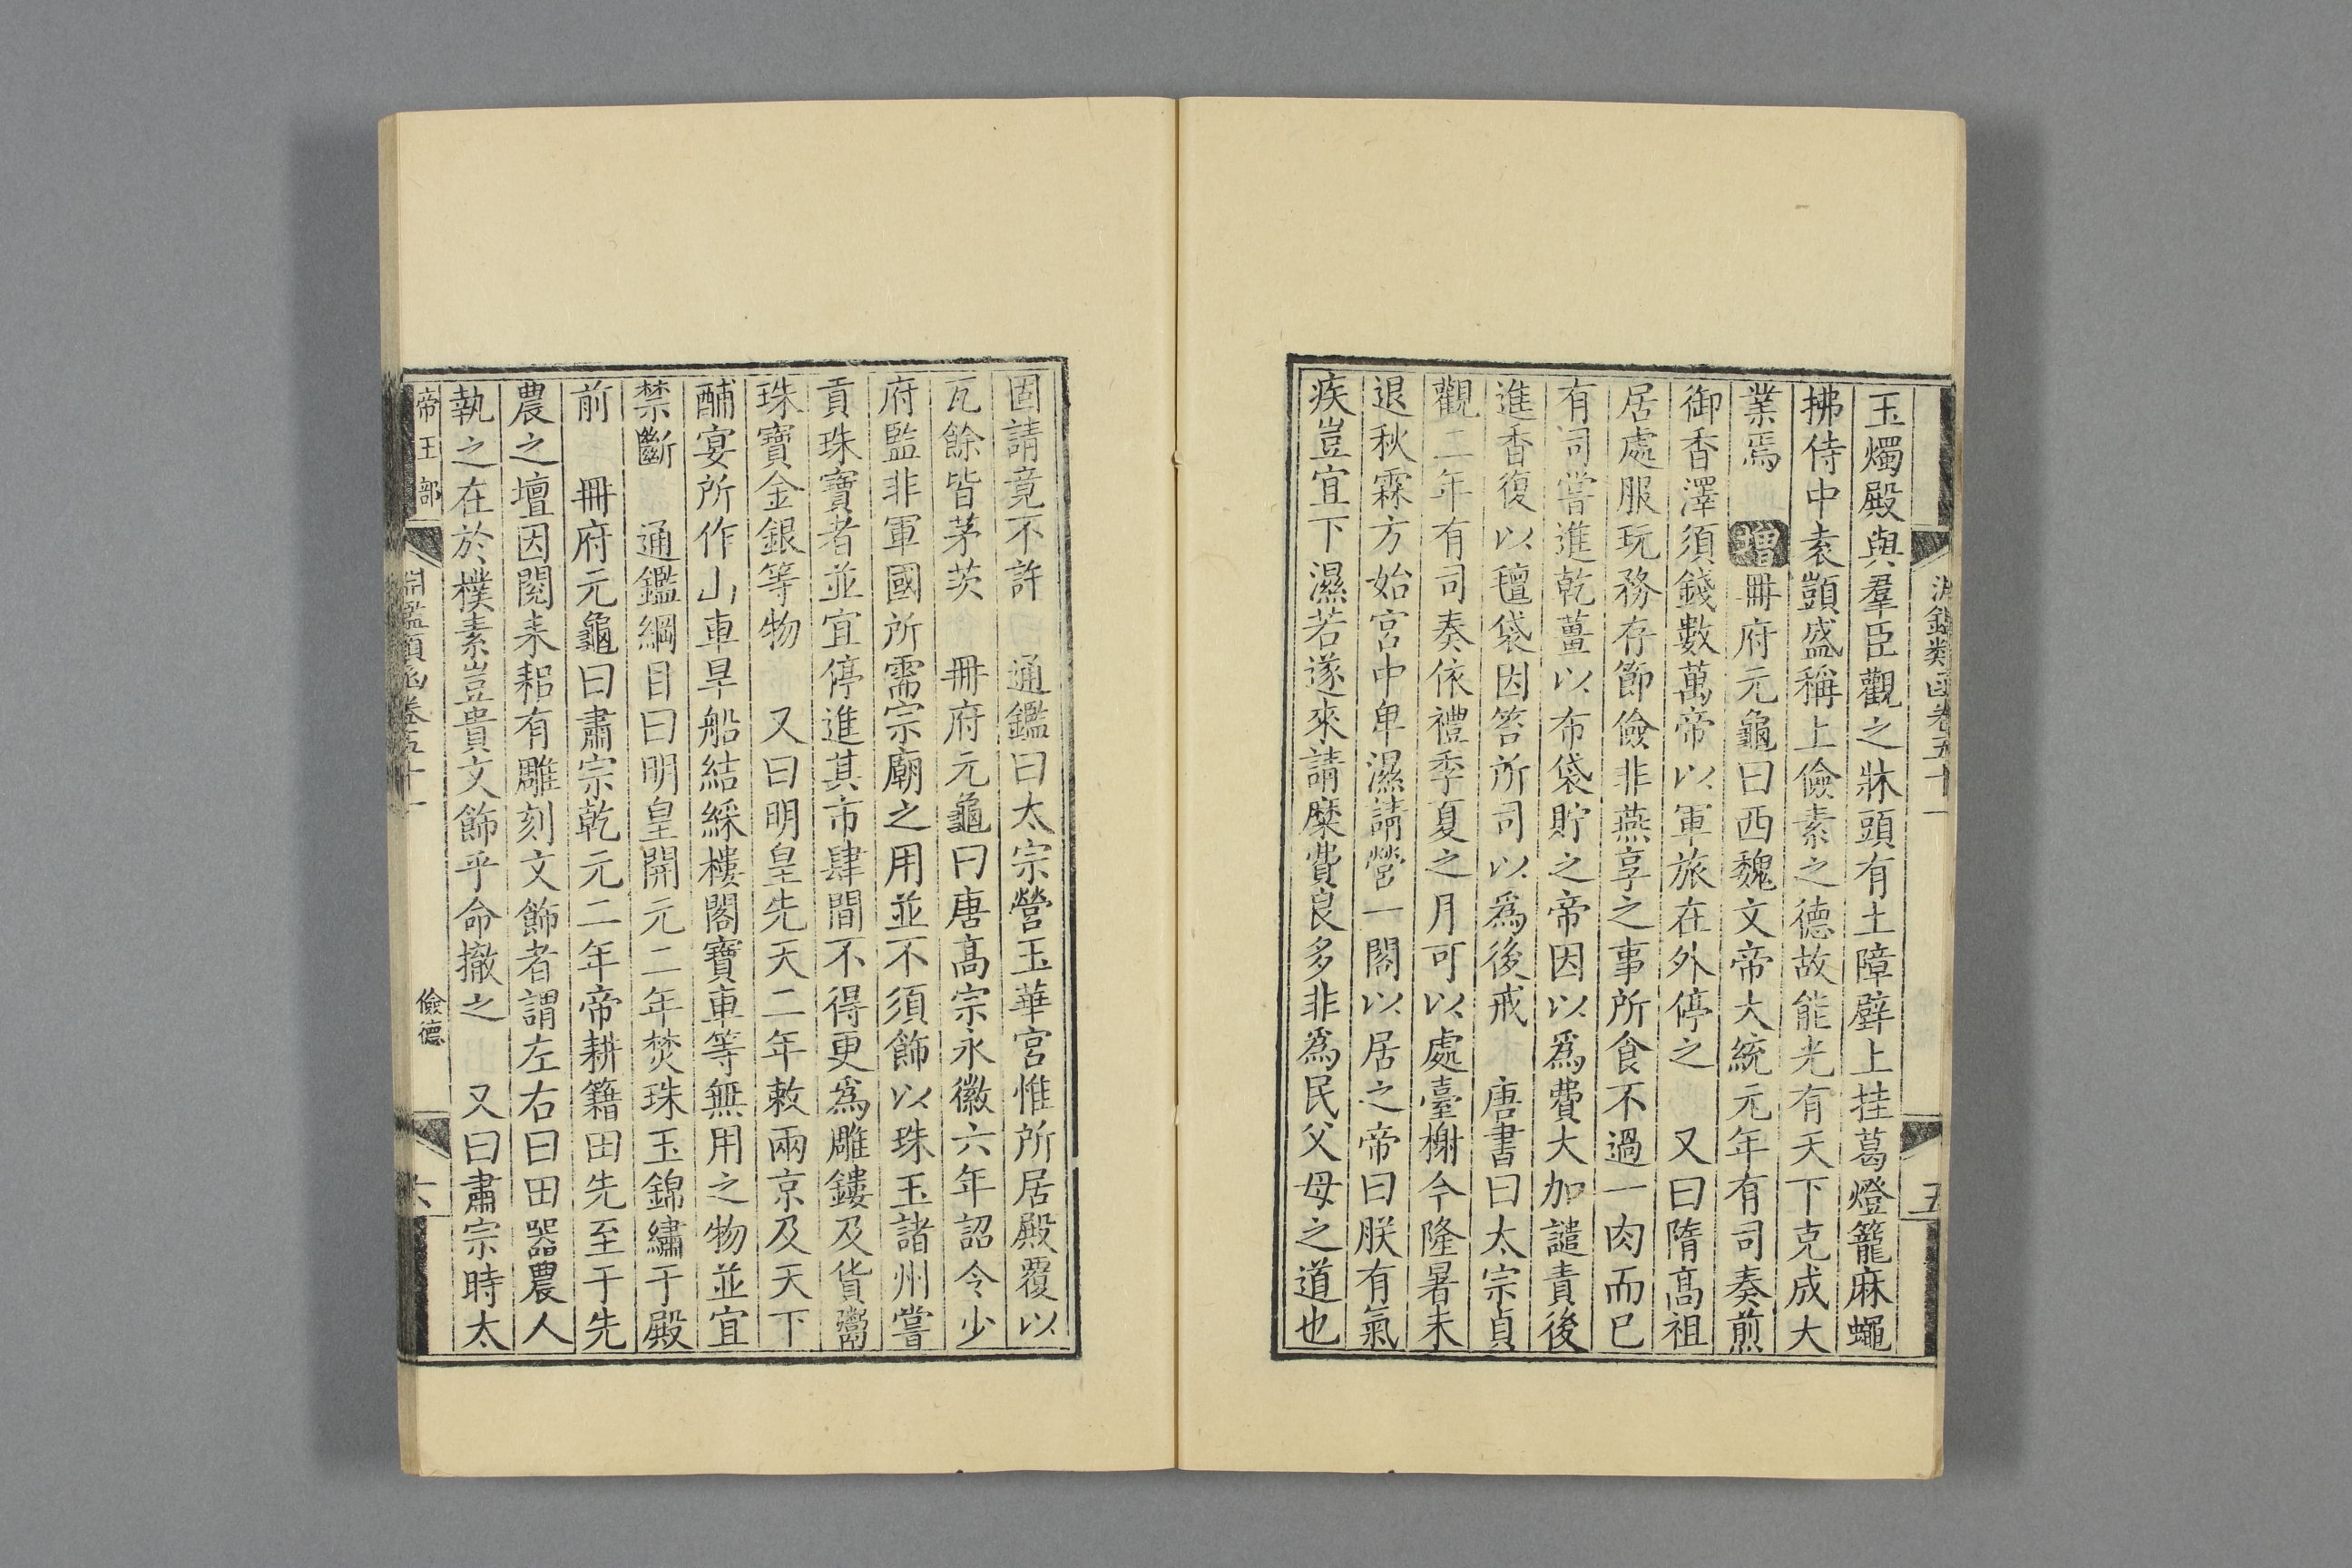 淵鑑類函卷五十一
五
玉燭殿與羣臣觀之牀頭有土障壁上挂葛燈籠麻蠅
拂侍中袁顗盛稱上儉素之德故能光有天下克成大
業焉 增冊府元龜曰西魏文帝大統元年有司奏煎
御香澤須錢數萬帝以軍旅在外停之 又曰隋高祖
居處服玩務存節儉非燕享之事所食不過一肉而已
有司嘗進乾薑以布袋貯之帝因以爲費大加譴責後
進香復以氊袋因笞所司以爲後戒 唐書曰太宗貞
觀二年有司奏依禮季夏之月可以處臺榭今隆暑未
退秋霖方始宮中卑濕請營一閣以居之帝曰朕有氣
疾豈宜下濕若遂來請糜費良多非爲民父母之道也
固請竟不許 通鑑曰太宗營玉華宮惟所居殿覆以
瓦餘皆茅茨 冊府元龜曰唐高宗永徽六年詔令少
府監非軍國所需宗廟之用並不須飾以珠玉諸州嘗
貢珠寶者並宜停進其市肆間不得更爲雕鏤及貨鬻
珠寶金銀等物 又曰明皇先天二年敕兩京及天下
酺宴所作山車旱船結綵樓閣寶車等無用之物並宜
禁斷 通鑑綱目曰明皇開元二年焚珠玉錦繡于殿
前 冊府元龜曰肅宗乾元二年帝耕籍田先至于先
農之壇因閱耒耜有雕刻文飾者謂左右曰田器農人
執之在於樸素豈貴文飾乎命撤之 又曰肅宗時太
帝王部
淵鑑類函卷五十一
儉德
六